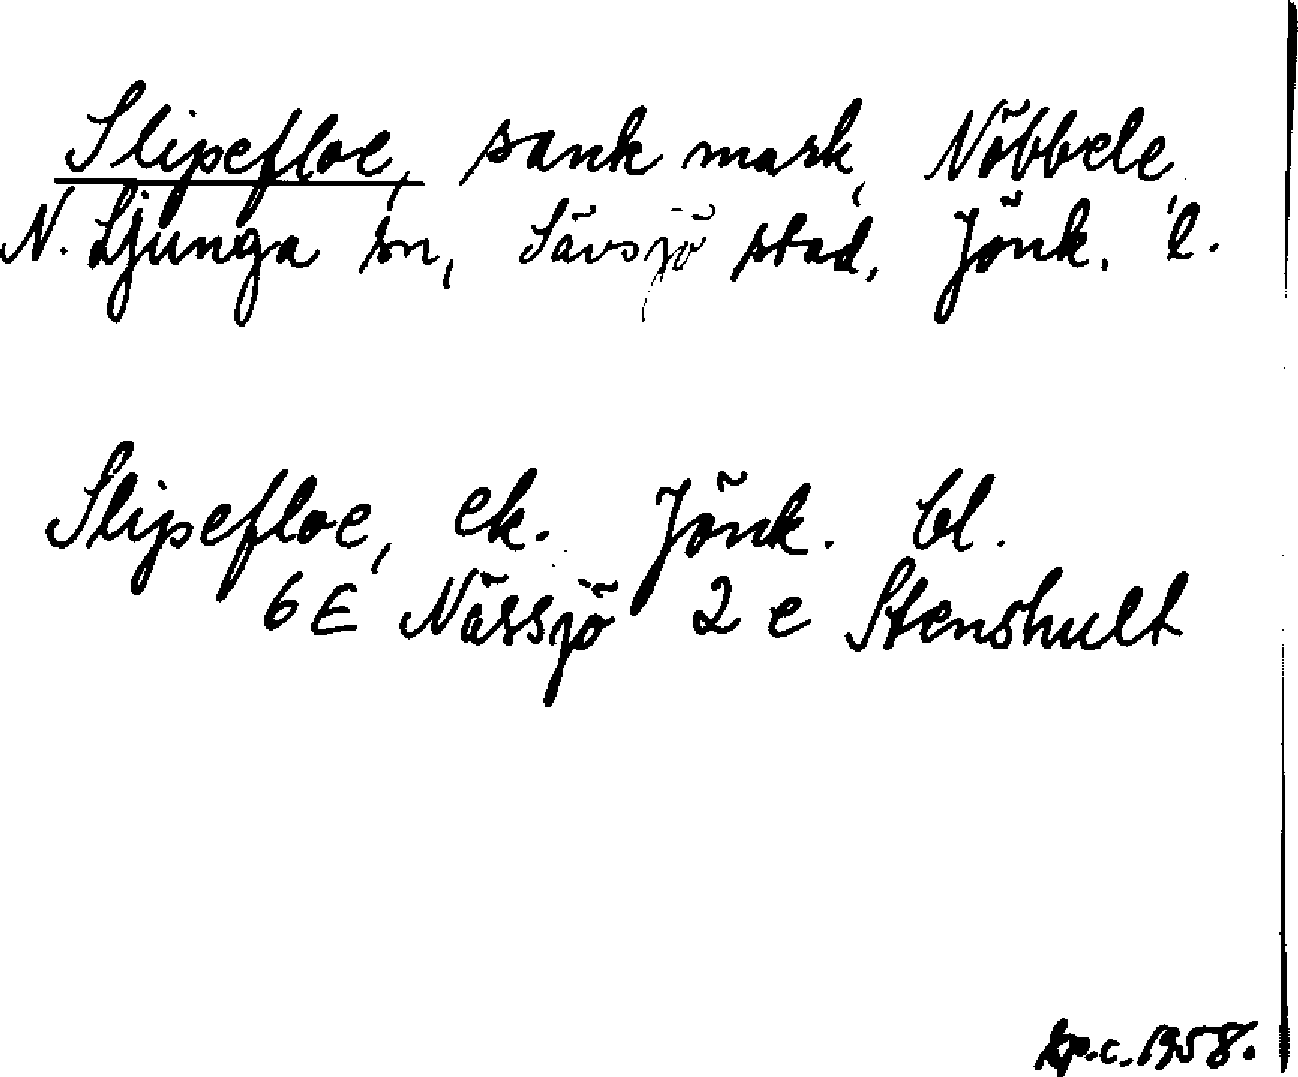 Slipefloe, sank mark, Nöbbele,
N. Ljunga sn, Sävsjö stad, Jönk. l.
Slipefloe, ek. Jönk. bl.
6E Nässjö 2 e Stenshult
kp.c. 1958.